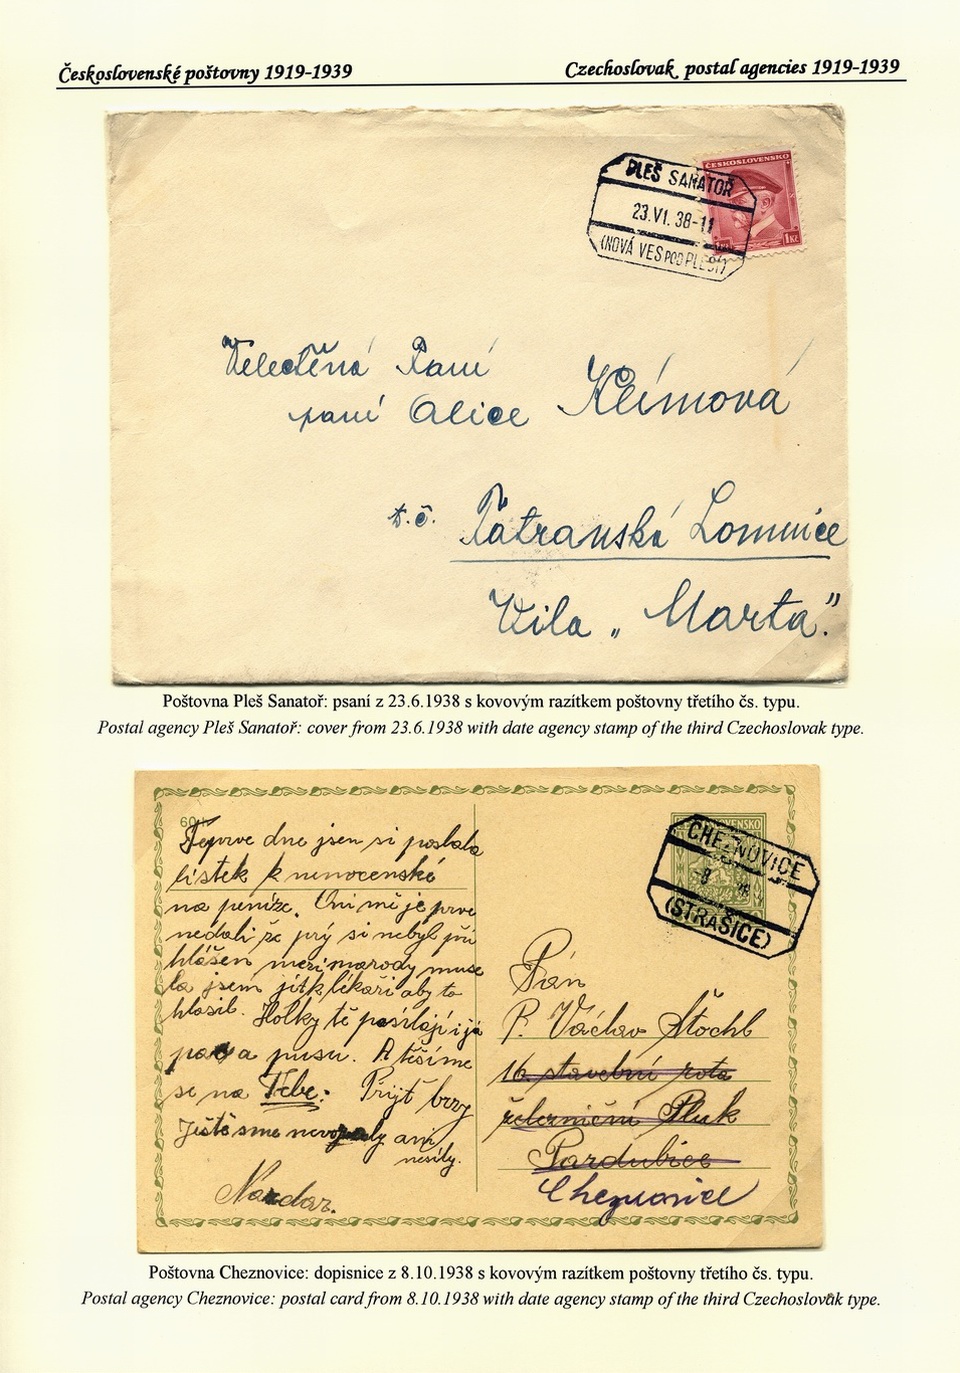 Československé poštovny 1919-1939
Czechoslovak postal agencies 1919-1939
PLEŠ SANATOŘ
23.VI.38-11
(NOVÁ VES POD PLEŠÍ)
ČESKOSLOVENSKO
1Kč
Velectěná Paní
paní Alice Klímová
t.č. Tatranská Lomnice
Vila „Marta."
Poštovna Pleš Sanatoř: psaní z 23.6.1938 s kovovým razítkem poštovny třetího čs. typu.
Postal agency Pleš Sanatoř: cover from 23.6.1938 with date agency stamp of the third Czechoslovak type.
60
CHEZNOVICE
8
(STRAŠICE)
Teprve dne jsem si poslala
lístek k nemocenské
na peníze. Oni mě je prve
nedali že prý si nebyl při
hlášen mezi národy muse
la jsem jít k lékaři aby to
hlásil. Holky tě posílají i já
pac a pusu. A těšíme
se na Tebe: Přijť brzy
Ještě sme nevozily ani
nesily.
Nazdar.
Pán
P. Václav Štochl
16. stavební rota
železniční Pluk
Pardubice
Cheznovice
Poštovna Cheznovice: dopisnice z 8.10.1938 s kovovým razítkem poštovny třetího čs. typu.
Postal agency Cheznovice: postal card from 8.10.1938 with date agency stamp of the third Czechoslovak type.